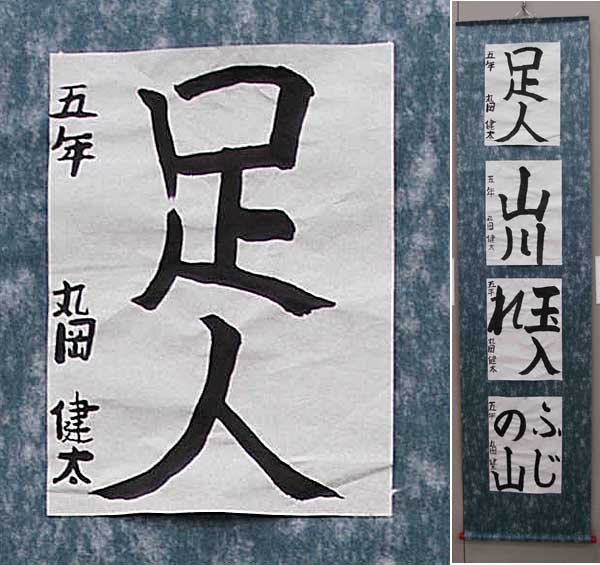 足人
五年 丸岡 健太
足人
五年 丸岡 健太
山川
五年 丸岡 健太
玉入
れ
五年 丸岡 健太
ふじ
の山
五年 丸岡 健太